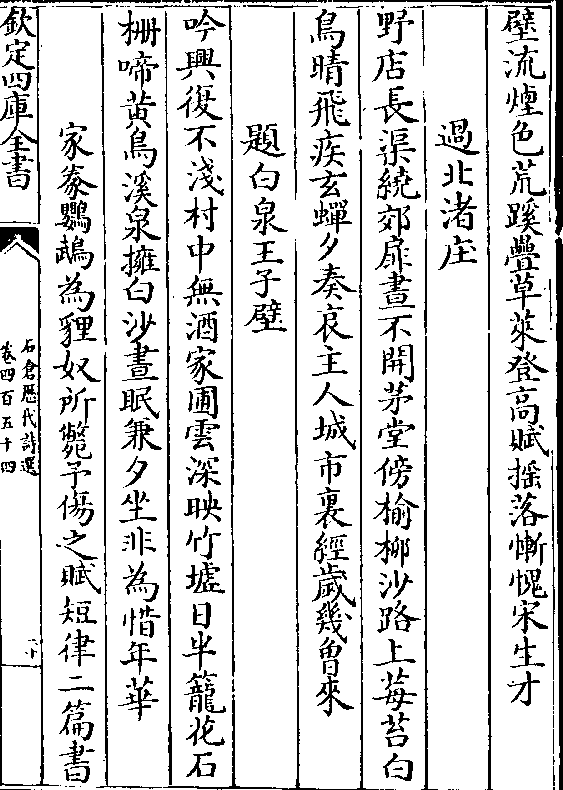 壁流煙色荒蹊疊草萊登高賦揺落慚愧宋生才
過北渚庄
野店長渠繞郊扉晝不開茅堂傍榆柳沙路上莓苔白
鳥晴飛疾玄蟬夕奏哀主人城市裏經歲幾曾來
題白泉王子壁
吟興復不淺村中無酒家圃雲深映竹墟日半籠花石
柵啼黄鳥溪泉擁白沙晝眠兼夕坐非為惜年華
家豢鸚鵡為貍奴所斃予傷之賦短律二篇書
欽定四庫全書
石倉歴代詩選
卷四百五十四